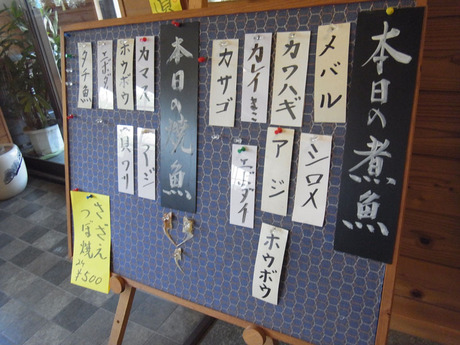 本日の煮魚
メバル
カワハギ
カレイ
カサゴ
ミシロメ
アジ
エボダイ
ホウボウ
本日の焼魚
カマス
ホウボウ
エボダイ
タチ魚
アジ
貝ワリ
さざえ
つぼ焼
¥500